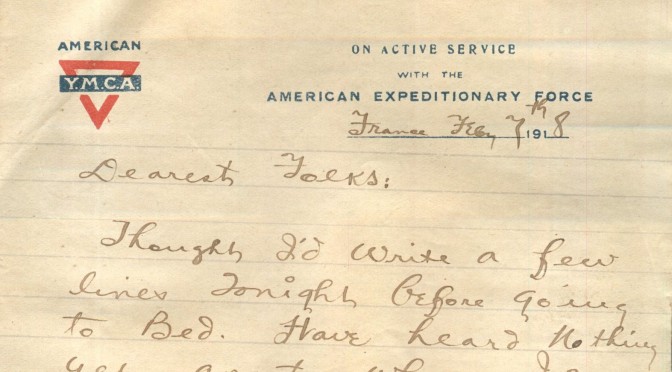 AMERICAN
Y.M.C.A.
ON ACTIVE SERVICE
WITH THE
AMERICAN EXPEDITIONARY FORCE
France Feby 7th 1918
Dearest Folks:
Thought I'd write a few
lines Tonight before going
to Bed. Have heard Nothing